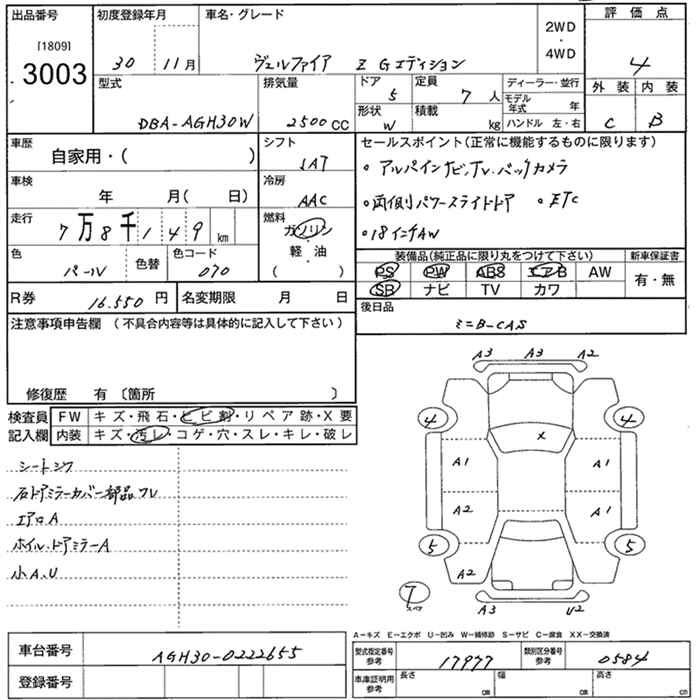 出品番号
[1809]
3003
初度登録年月
30 11月
車名・グレード
ヴェルファイア Z Gエディション
2WD
・
4WD
評価点
4
外装 内装
C B
型式
DBA-AGH30W
排気量
2500 CC
ドア 5
定員 7 人
形状 W
積載 kg
ディーラー・並行
モデル年式 年
ハンドル 左・右
車歴
自家用・( )
シフト
IAT
車検
年 月( 日)
冷房
AAC
走行
7万8千149 km
燃料
ガソリン
軽・油
( )
色
パール
色替
色コード
070
セールスポイント(正常に機能するものに限ります)
・アルパインナビ、TV、バックカメラ
・両側パワースライドドア ・ETC
・18インチAW
装備品(純正品に限り丸をつけて下さい)
PS PW ABS エアB AW
SB ナビ TV カワ
新車保証書
有・無
R券 16.550 円
名変期限 月 日
後日品
ミニB-CAS
注意事項申告欄 (不具合内容等は具体的に記入して下さい)
修復歴 有 〔箇所 〕
検査員記入欄
FW キズ・飛石・ヒビ割・リペア跡・X要
内装 キズ・汚レ・コゲ・穴・スレ・キレ・破レ
シートシワ
右ドアミラーカバー部品フレ
エアロA
ホイル、ドアミラーA
小A、U
A3 A3 A2
4 4
X
A1 A1
A2 A1
5 5
A2
7
スペア
A3 U2
A-キズ E-エクボ U-凹み W-補修跡 S-サビ C-腐食 XX-交換済
車台番号
AGH30-0222655
登録番号
型式指定番号 参考
17977
類別区分番号 参考
0584
車庫証明用 参考
長さ cm
幅 cm
高さ cm